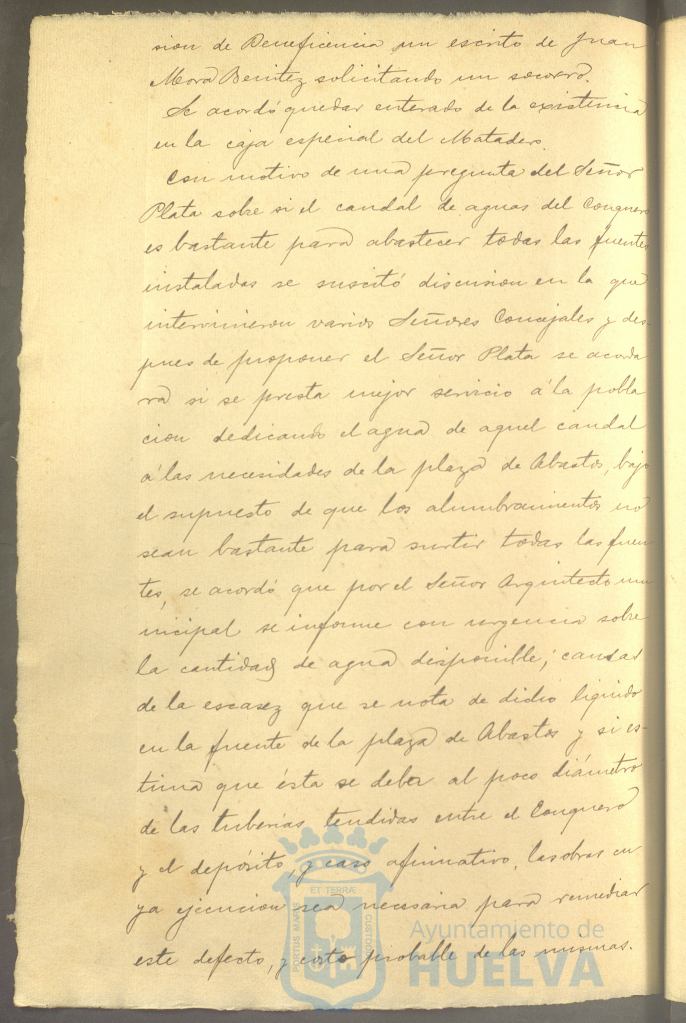 sion de Beneficencia un escrito de Juan
Mora Benitez solicitando un socorro.
Se acordó quedar enterado de la existencia
en la caja especial del Matadero.
Con motivo de una pregunta del Señor
Plata sobre si el caudal de aguas del Conquero
es bastante para abastecer todas las fuentes
instaladas se suscitó discusion en la que
intervinieron varios Señores Concejales y des-
pues de proponer el Señor Plata se acorda
ra si se presta mejor servicio á la pobla
cion dedicando el agua de aquel caudal
á las necesidades de la plaza de Abastos, bajo
el supuesto de que los alumbramientos no
sean bastante para surtir todas las fuen
tes, se acordó que por el Señor Arquitecto mu
nicipal se informe con urgencia sobre
la cantidad de agua disponible; causas
de la escasez que se nota de dicho liquido
en la fuente de la plaza de Abastos y si es-
tima que ésta se deba al poco diámetro
de las tuberías tendidas entre el Conquero
y el depósito, y caso afirmativo, las obras cu
ya ejecucion sea necesaria para remediar
este defecto, y costo probable de las mismas.
ET TERRÆ
PORTUS MARIS
CUSTODIA
Ayuntamiento de
HUELVA